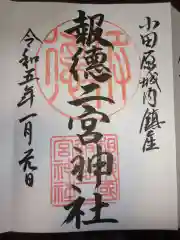 小田原城内鎮座
報徳二宮神社
令和五年一月元日